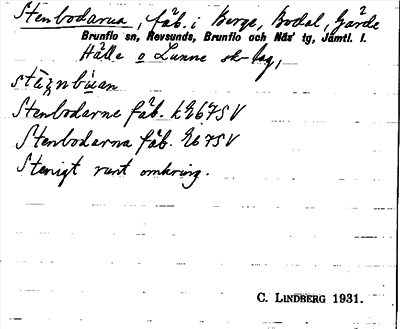 Stenbodarna, fäb. i Berge, Bodal, Gärde
Brunflo sn, Revsunds, Brunflo och Näs' tg, Jämtl. l.
Hälle o Lunne sk-lag,
Stenbodarne fäb. k E67SV
Stenbodarna fäb. E67SV
Stenigt runt omkring.
C. LINDBERG 1931.